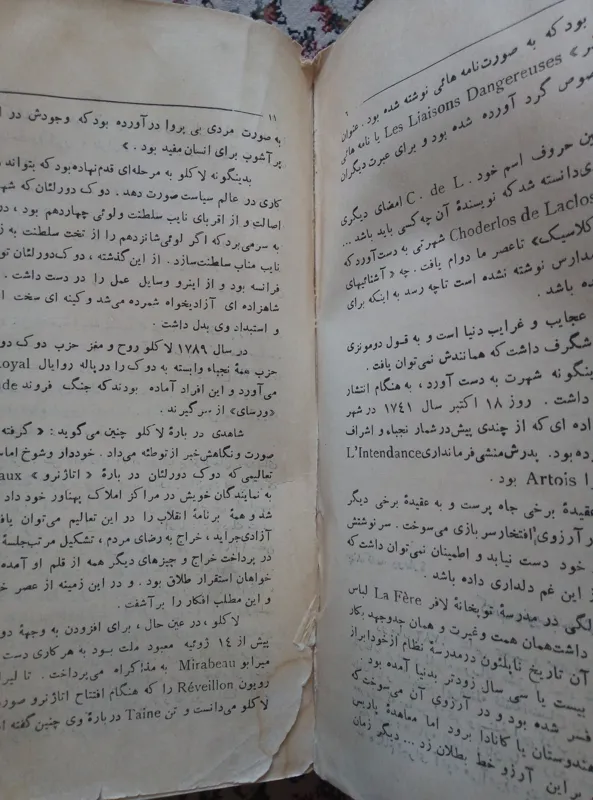 ۱۰
بود که به صورت نامه هائی نوشته شده بود . عنوان
» Les Liaisons Dangereuses یا نامه هائی
گرد آورده شده بود و برای عبرت دیگران
حروف اسم خود C. de L. امضای دیگری
دانسته شد که نویسندهٔ آن چه کسی باید باشد ...
Choderlos de Laclos شهرتی به دست آورد که
کلاسیک» تا عصر ما دوام یافت . چه « آشنائیهای
مدارس نوشته نشده است تا چه رسد به اینکه برای
باشد .
عجایب و غرایب دنیا است و به قول دومونزی
شگرف داشت که همانندش نمی‌توان یافت .
شهرت به دست آورد ، به هنگام انتشار
داشت . روز ۱۸ اکتبر سال ۱۷۴۱ در شهر
ای که از چندی پیش در شمار نجباء و اشراف
بود . پدرش منشی فرمانداری L'Intendance
را Artois بود .
عقیدهٔ برخی جاه پرست و به عقیدهٔ برخی دیگر
آرزوی افتخار سربازی می‌سوخت . سرنوشتش
خود دست نیابد و اطمینان نمی‌توان داشت که
از این غم دلداری داده باشد .
در مدرسهٔ توپخانهٔ لافر La Fère لباس
داشت همان همت و غیرت و همان جد و جهد بکار
آن تاریخ ناپلئون در مدرسهٔ نظام از خود ابراز
بیست یا سی سال زودتر بدنیا آمده بود .
شده بود و در آرزوی آن می‌سوخت که
هندوستان یا کانادا برود اما معاهدهٔ پاریس
بر این آرزو خط بطلان زد ... دیگر زمان
۱۱
به صورت مردی بی پروا در آورده بود که وجودش در
پر آشوب برای انسان مفید بود . »
بدینگونه لاکلو به مرحله‌ای قدم نهاده بود که بتواند
کاری در عالم سیاست صورت دهد . دوک دورلئان که
اصالت و از اقربای نایب سلطنت ولوئی چهاردهم بود ،
به سر می‌برد که اگر لوئی شانزدهم را از تخت سلطنت به
نایب مناب سلطنت سازد . از این گذشته ، دوک دورلئان
فرانسه بود و از اینرو وسایل عمل را در دست داشت .
شاهزاده ای آزادیخواه شمرده می‌شد و کینه ای سخت
و استبداد وی بدل داشت .
در سال ۱۷۸۹ لاکلو روح و مغز حزب دوک
حزب همهٔ نجباء وابسته به دوک را در پاله روایال Royal
می‌آورد و این افراد آماده بودند که جنگ فروند
«ورسای» از سر گیرند .
شاهدی در بارهٔ لاکلو چنین می‌گوید : « گرفته
صورت و نگاهش خبر از توطئه می‌داد . خوددار و شوخ اما
تعالیمی که دوک دورلئان در بارهٔ « اتاژنرو »
به نمایندگان خویش در مراکز املاک پهناور خود داد
شد و همهٔ برنامهٔ انقلاب را در این تعالیم می‌توان
آزادی جراید ، خراج به رضای مردم ، تشکیل مرتب جلسهٔ
در پرداخت خراج و چیزهای دیگر همه از قلم او آمده
خواهان استقرار طلاق بود . و در این زمینه از عصر
و این مطلب افکار را بر آشفت .
لاکلو ، در عین حال ، برای افزودن به وجههٔ
پیش از ۱۴ ژوئیه معبود ملت بود به هر کاری دست
میرابو Mirabeau به مذاکراه می‌پرداخت .
رویون Réveillon را که هنگام افتتاح اتاژنرو
لاکلو می‌دانست و تن Taine در بارهٔ وی چنین گفته